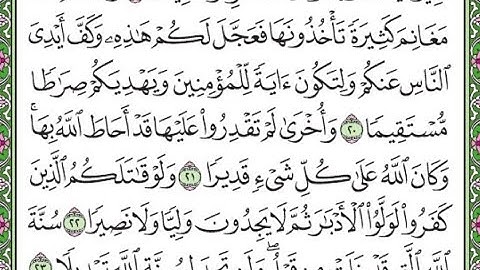 مَغَانِمَ كَثِيرَةً تَأْخُذُونَهَا فَعَجَّلَ لَكُمْ هَٰذِهِۦ وَكَفَّ أَيْدِىَ
ٱلنَّاسِ عَنكُمْ وَلِتَكُونَ ءَايَةً لِّلْمُؤْمِنِينَ وَيَهْدِيَكُمْ صِرَٰطًا
مُّسْتَقِيمًا ٢٠ وَأُخْرَىٰ لَمْ تَقْدِرُوا۟ عَلَيْهَا قَدْ أَحَاطَ ٱللَّهُ بِهَا ۚ
وَكَانَ ٱللَّهُ عَلَىٰ كُلِّ شَىْءٍ قَدِيرًا ٢١ وَلَوْ قَٰتَلَكُمُ ٱلَّذِينَ
كَفَرُوا۟ لَوَلَّوُا۟ ٱلْأَدْبَٰرَ ثُمَّ لَا يَجِدُونَ وَلِيًّا وَلَا نَصِيرًا ٢٢ سُنَّةَ
ٱللَّهِ ٱلَّتِى قَدْ خَلَتْ مِن قَبْلُ ۖ وَلَن تَجِدَ لِسُنَّةِ ٱللَّهِ تَبْدِيلًا ٢٣